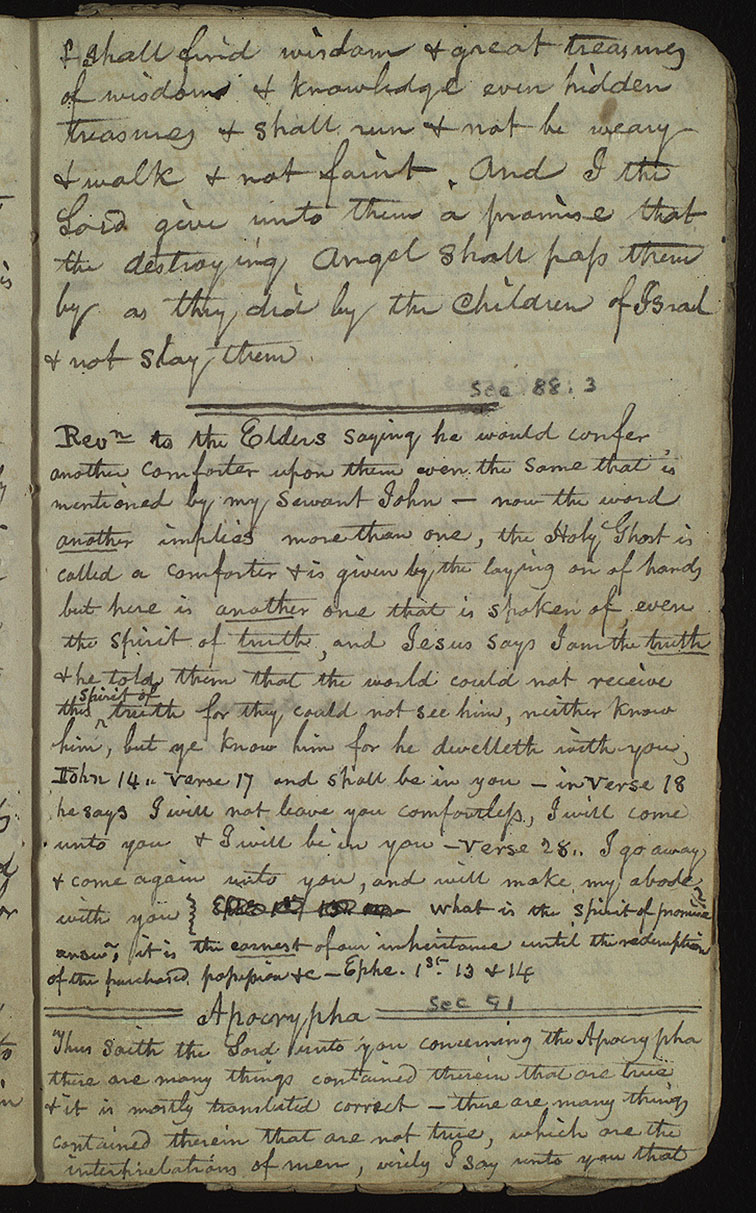 & shall find wisdom & great treasures
of wisdom & knowledge even hidden
treasures & shall run & not be weary
& walk & not faint. And I the
Lord give unto them a promise that
the destroying Angel shall pass them
by as they did by the Children of Israel
& not slay them.
Sec 88.3
Revn to the Elders saying he would confer
another comforter upon them even the same that is
mentioned by my servant John — now the word
another implies more than one, the Holy Ghost is
called a comforter & is given by the laying on of hands
but here is another one that is spoken of, even
the spirit of truth, and Jesus says I am the truth
& he told them that the world could not receive
spirit of
this truth for they could not see him, neither know
him, but ye know him for he dwelleth with you,
John 14.. Verse 17 and shall be in you — in Verse 18
he says I will not leave you comfortless, I will come
unto you & I will be in you — Verse 28.. I go away
& come again unto you, and will make my abode
with you } What is the spirit of promise
answr, it is the earnest of our inheritance until the redemption
of the purchased possession &c — Ephe. 1st 13 & 14
Sec 91
Apocrypha
Thus saith the Lord unto you concerning the Apocrypha
there are many things contained therein that are true
& it is mostly translated correct — there are many things
contained therein that are not true, which are the
interpretations of men, verily I say unto you that